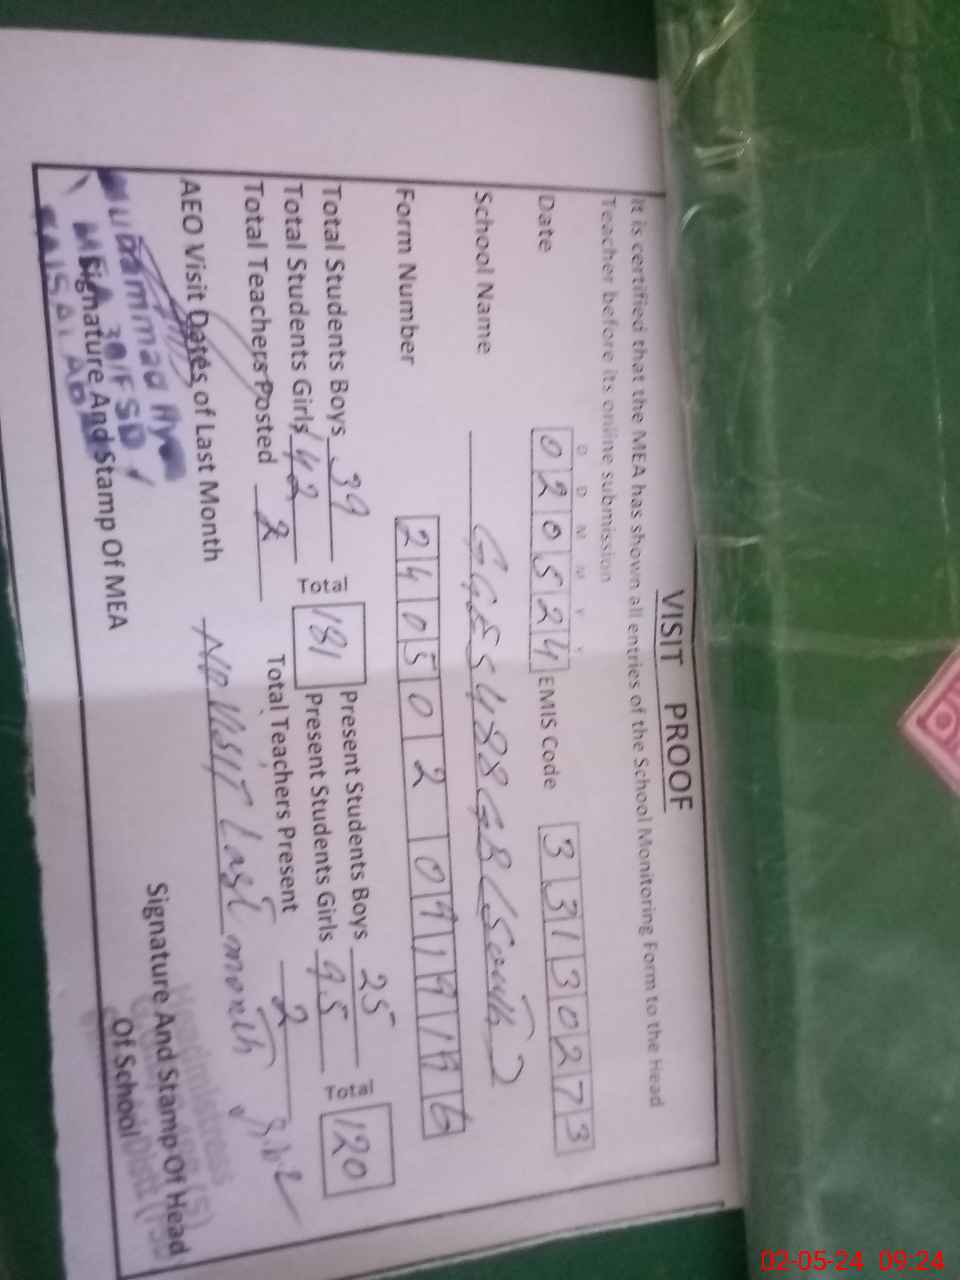 VISIT PROOF
It is certified that the MEA has shown all entries of the School Monitoring Form to the Head
Teacher before its online submission
D D M M Y Y
Date 020524 EMIS Code 33130273
School Name GGES 488 GB (South)
Form Number 240502
Total Students Boys 39 Total 181 Present Students Boys 25 Total 120
Total Students Girls 142 Present Students Girls 95
Total Teachers Posted 2 Total Teachers Present 2
AEO Visit Dates of Last Month No Visit Last month
Muhammad
MEA 30/FSD
FAISALABAD
Signature And Stamp Of MEA
Headmistress
Signature And Stamp Of Head
Of School
02-05-24 09:24